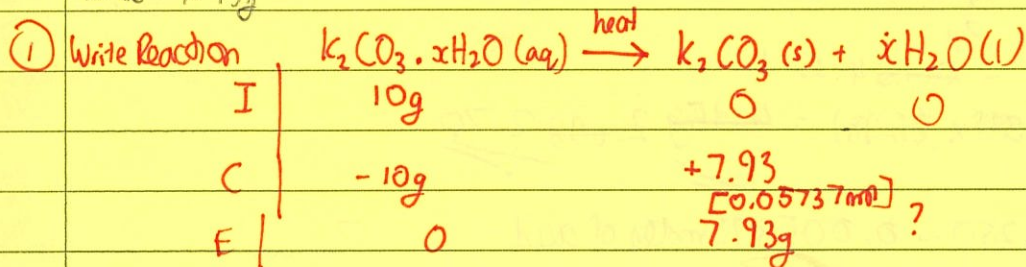 ① Write Reaction K₂CO₃ . xH₂O (aq) heat → K₂CO₃ (s) + xH₂O (l)
I 10g 0 0
C - 10g +7.93
[0.05737mol] ?
E 0 7.93g